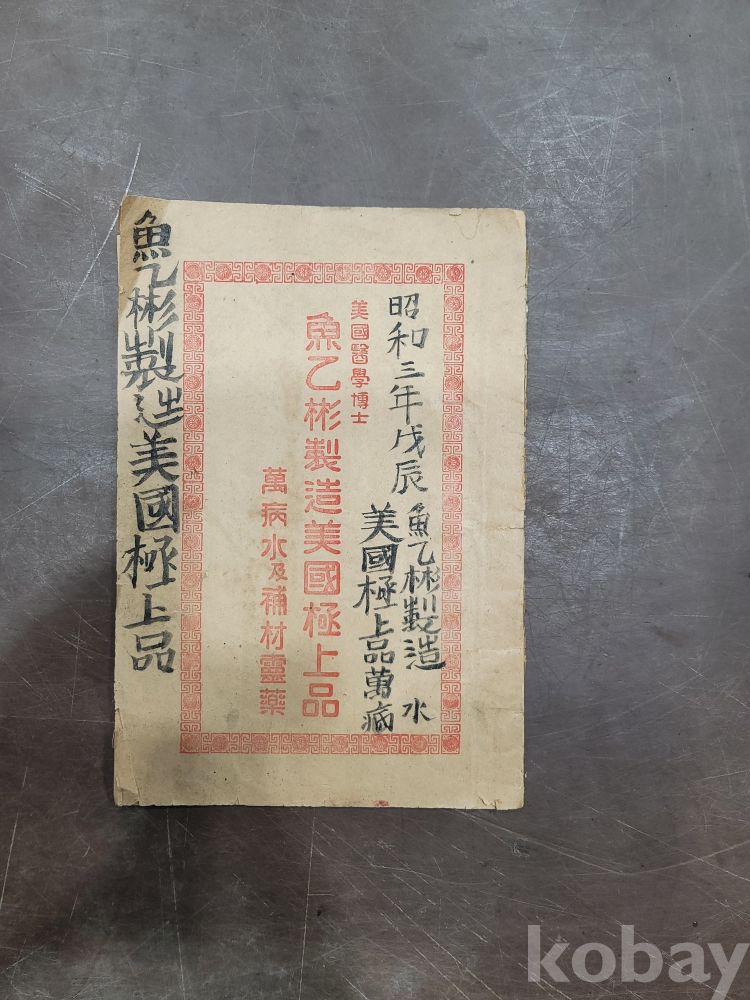 昭和三年戊辰
魚乙彬製造
水
美國極上品萬病
美國醫學博士
魚乙彬製造美國極上品
萬病水及補材靈藥
魚乙彬製造美國極上品
kobay